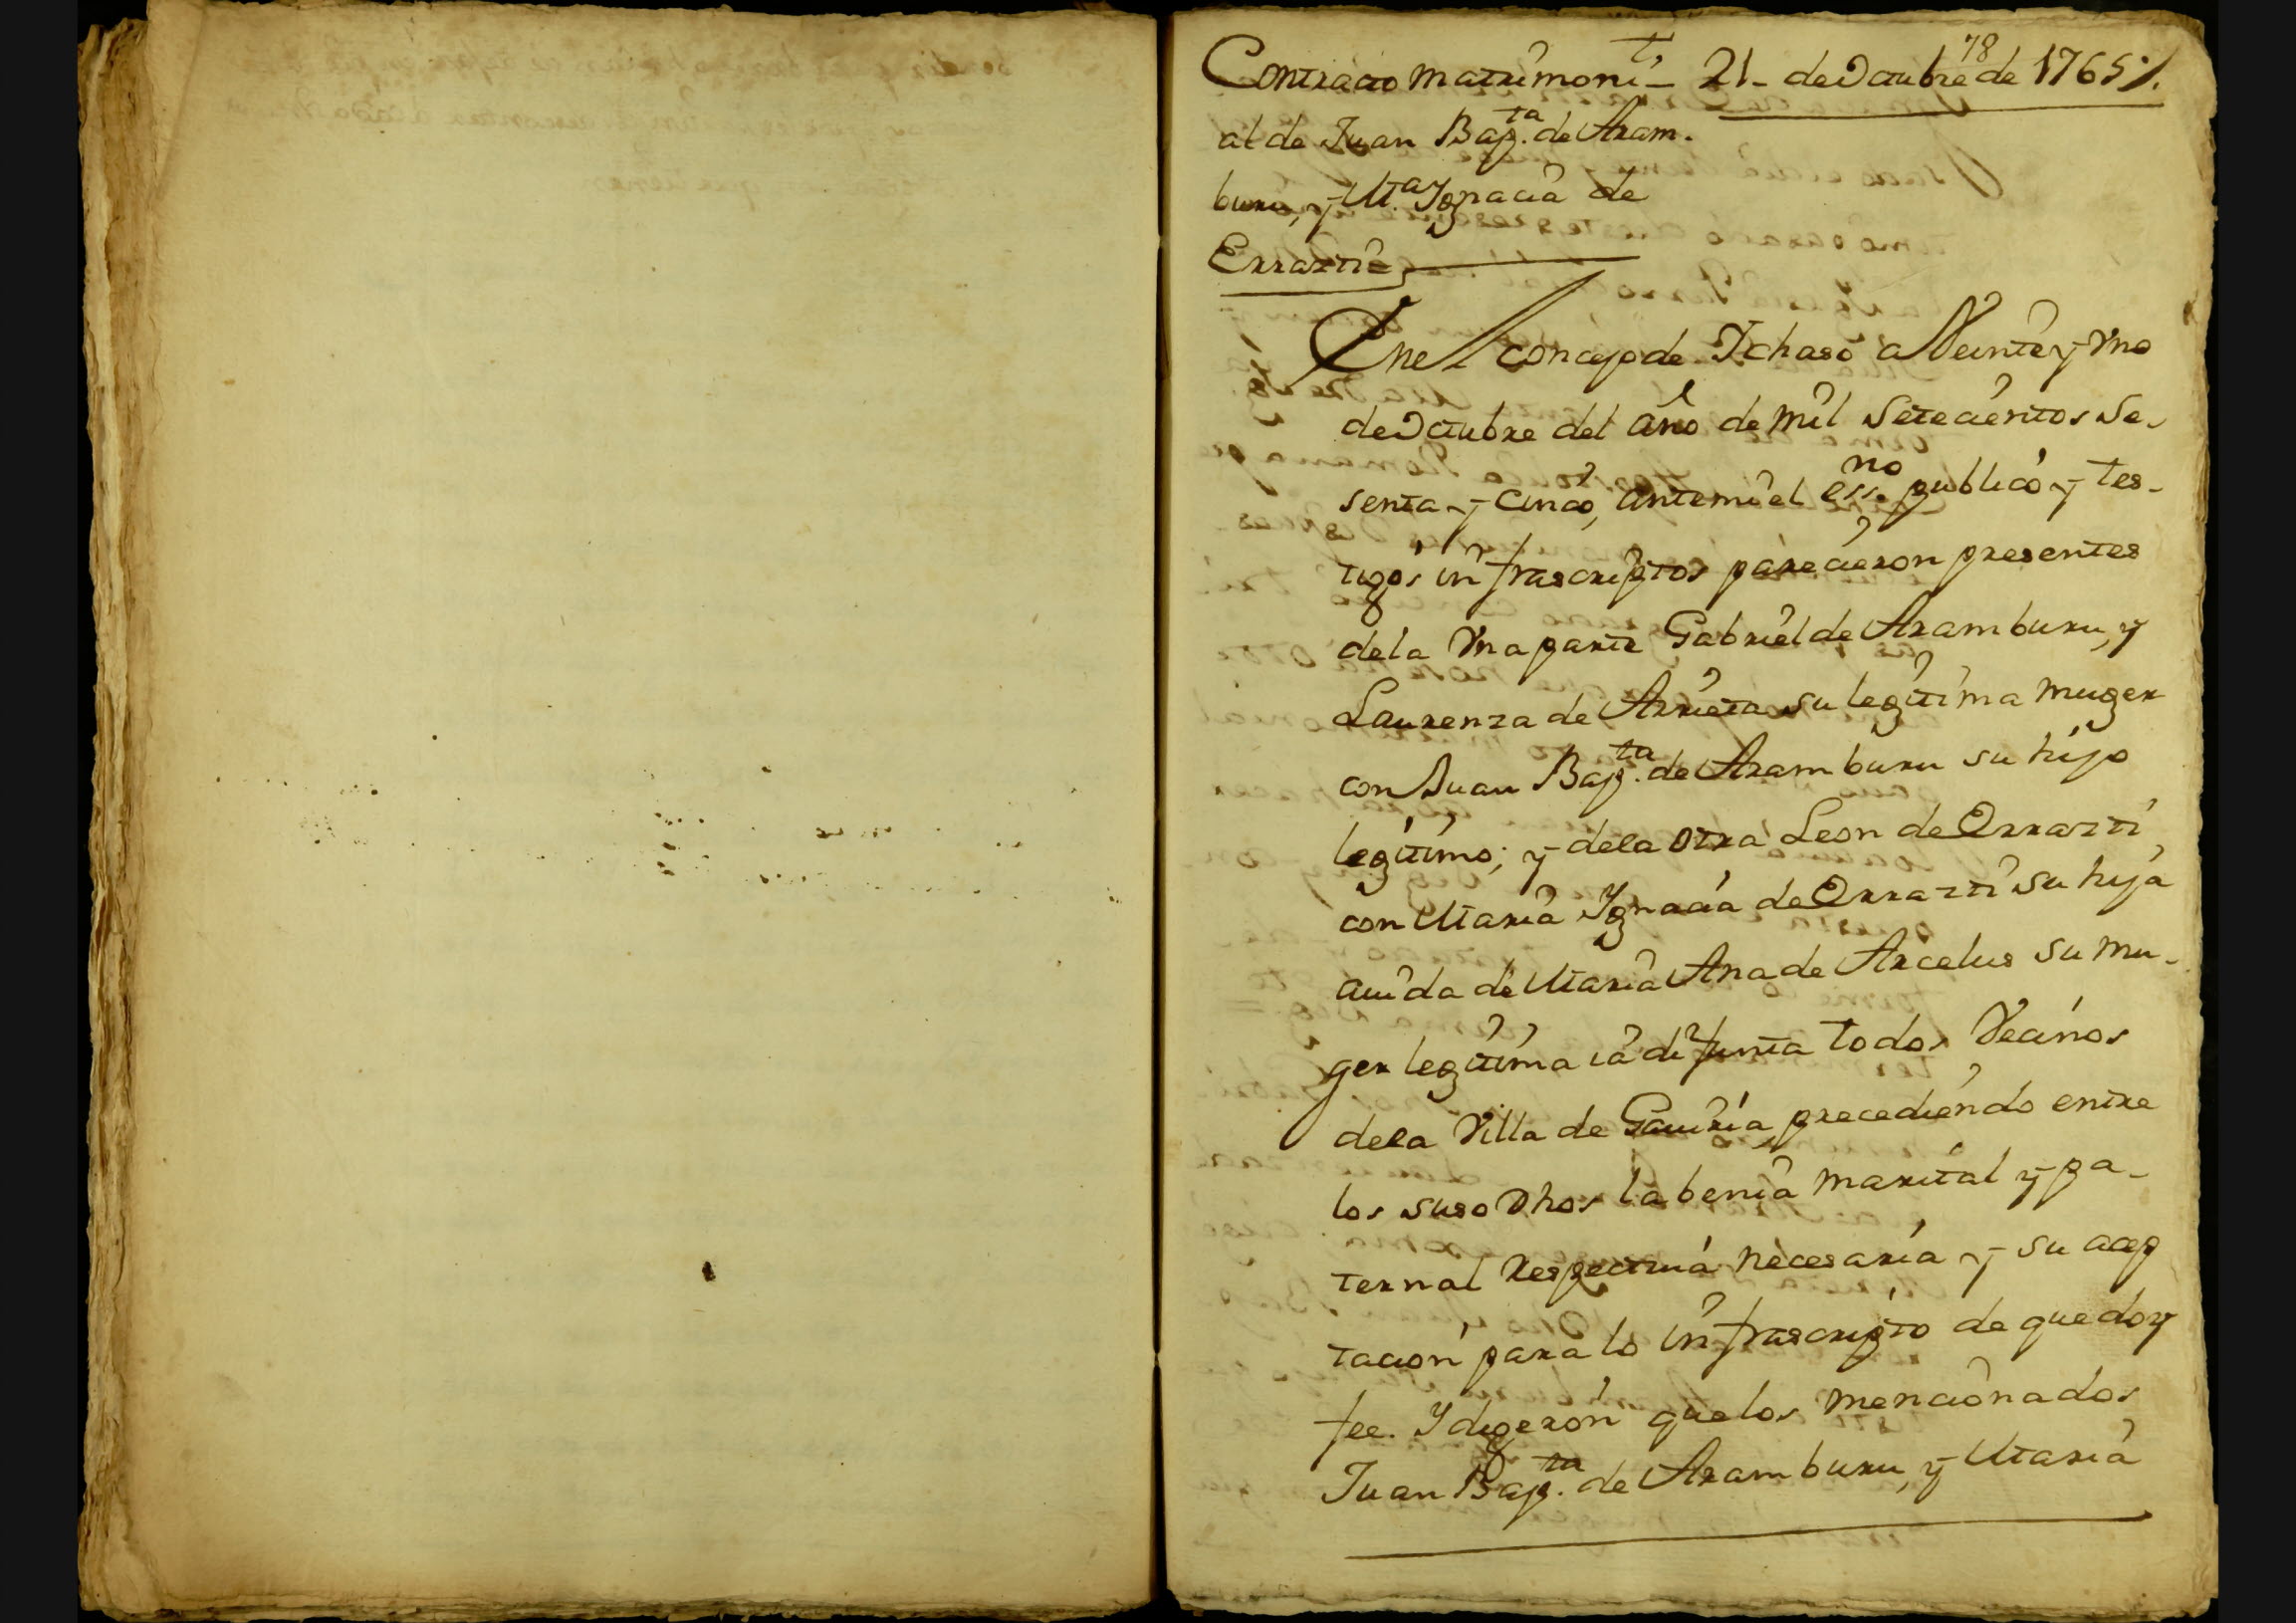 78
Contracto matrimoni- 21- de Octubre de 1765 %.
al de Juan Bap.ta de Aram-
buru, y M.a Ygnacia de
Errazti
En el concejo de Ichaso a Veinte y Vno
de Octubre del año de mil Setecientos Se-
senta y cinco, ante mi el ess.no publico y tes-
tigos infrascriptos parecieron presentes
de la Vna parte Gabriel de Aramburu, y
Laurenza de Arrieta su legitima muger
con Juan Bap.ta de Aramburu su hijo
legitimo; y de la otra Leon de Errazti,
con Maria Ygnacia de Errazti su hija
auida de Maria Ana de Arcelus su mu-
ger legitima ia difunta todos Vecinos
de la Villa de Gauiria, precediendo entre
los suso Dhos la benia marital y pa-
ternal Respectiua necesaria y su acep
tacion para lo infrascripto de que doy
fee. Y digeron que los mencionados
Juan Bap.ta de Aramburu, y Maria